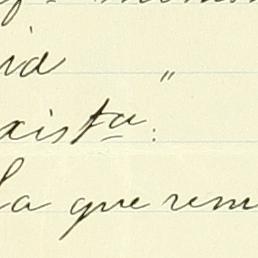 ia "
xista:
la que rem